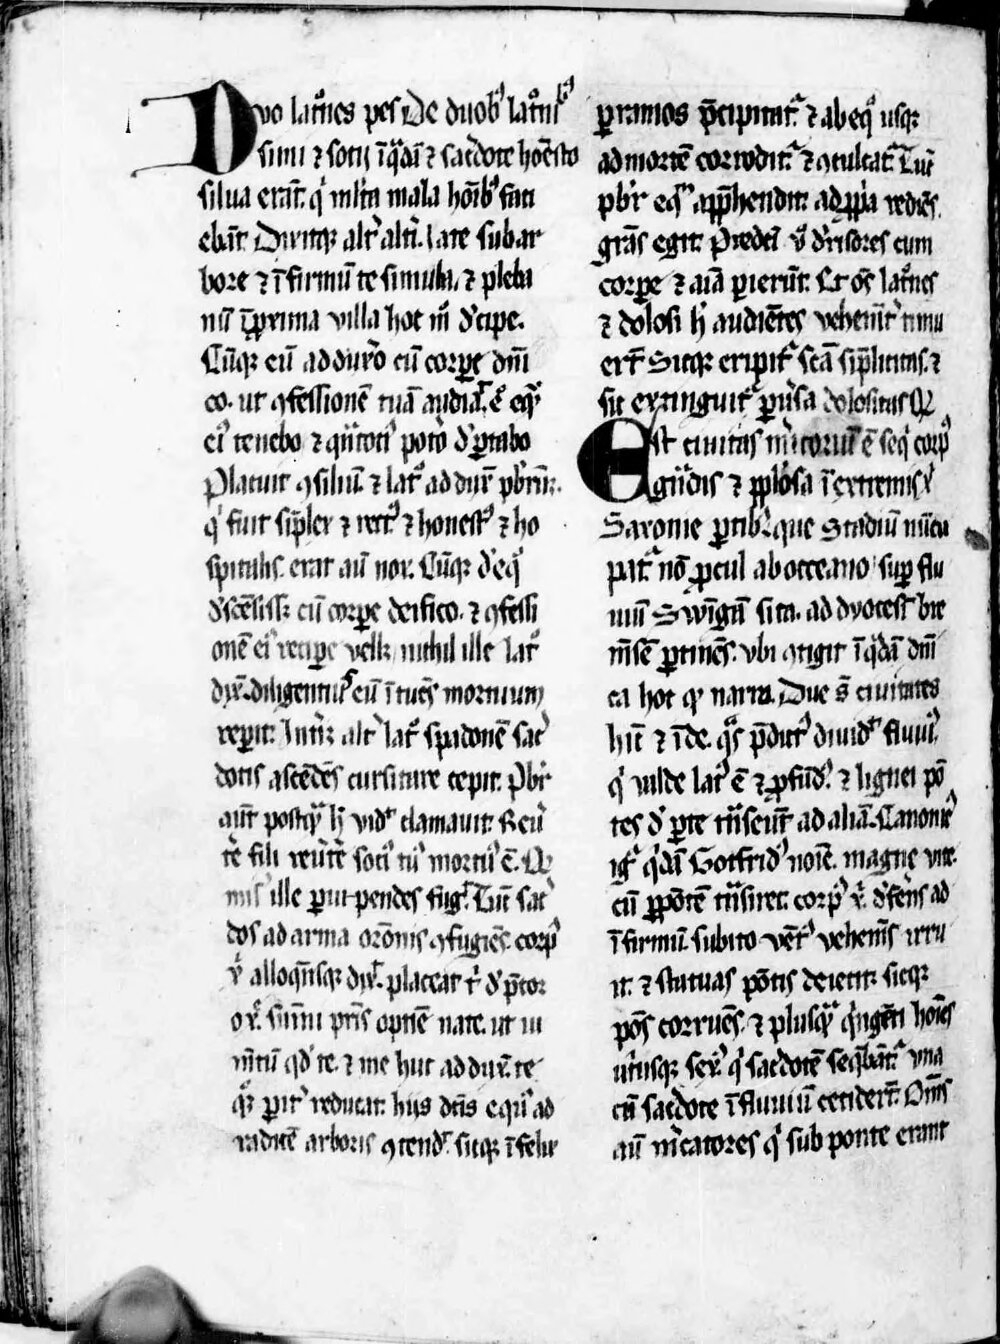 Duo lat̄ones pes De duob9 lat̄nib9
simi ⁊ sotij ī q̄dā ⁊ sac̄dote hon̄esto
silua erāt. q̇ mĺta mala hōīb9 faci
ebāt. Dixitq̨ alt̉ alt̉i. Iace sub ar
bore ⁊ ī firmū te simula. ⁊ pleba
nū ī p̄xima villa hoc m̊ d̉cipe.
Cūq̨ eū adduxo cū corpe dn̄i
co. ut ꝯfessionē tuā audiat. e̊ eq̄
ei9 tenebo ⁊
Placuit ꝯsiliū. ⁊ lat̊ adduxͭ pb̄rm.
q̇ fuit sīplex ⁊ rect9 ⁊ honest9 ⁊ ho
spitalis. erat aū nox. Cūq̨ d̉ eq̊
d̉scēsiss̨ cū corpe deifico. ⁊ ꝯfessi
onē ei9 recipe vellꝫ nichil ille lat̊
dix̄. diligenti9 eū ītuēs mortuum
reperit. Int̉ī alt̉ lat̊ spadonē sac̉
dotis ascēdēs cursitare cepit. Pb̄r
aūt postq̄ h̄ vid̉ clamauit.
te fili reủte soci9 tu9 mortu9 ē.
mis9 ille p̱uipendēs fug̉. Tūc sac̉
dos ad arma or̄onis ꝯfugiēs. corp9
x̉ alloq̄nsq̨ dix̉. placeat t̉ d̉p̄cor
ox̉. sūmi pr̄is optīe nate. ut in
ꝗd̉ te. ⁊ me huc adduxͭ. te
q̊ꝫ p̱it̉ reducat. hijs dc̄is equ9 ad
radicē arboris ꝯtend̉. sicq̨ īfelix
p̱ ramos p̄cipitat̉. ⁊ ab eq̊ usq̨
ad mortē corrodit̉ ⁊ ꝯculcat̉. Tūc
pb̄r eq̄ app̄hendit. ad p̱p̱a rediēs.
gr̄as egit. Predc̄i v̊ d̉risores cum
corpe ⁊ aīa p̱ierūt. Et oēs lat̄nes
⁊ dolosi h̄ audiētes vehem̄t̉ timu
erūt Sicq̨ eripit̉ sc̄a sīplicitas. ⁊
sic extinguit̉ p̱ủsa dolositas
Est ciuitas m̉catorū ē seq̄ corp9
eg̉dis ⁊ p̱p̱losa ī extremis x̉
Saxonie p̱tib9. que Stadiū nūcu
pat̉ nō p̱cul ab occeano sup̱ flu
uiū Swīgā sita. ad dyocesͭ bre
m̄sē p̱tinēs. vbi ꝯtigit ī q̄dā dn̄i
ca hoc qͩ narrā. Due s̄t ciuitates
hīc ⁊ īde. q̊s p̄dict9 diuid̉ fluui9.
q̇ valde lat9 ē ⁊ p̱fūd9. ⁊ lignei pō
tes d̉ p̱te t̄nseūt ad aliā. Canonic9
igͭ q̇dā Gotfrid9 noīe. magne vite.
cū p̱ pōtē t̄nsiret. corp9 x̉ d̉fe̊ns ad
īfirmū. subito vēt9 vehemēs irru
it. ⁊ statuas pōtis deiecit. sicq̨
pōs corruēs. ⁊ plusq̄ q̄ngēti hoīes
ut̉usq̨ sex9 q̇ sac̄dotē seq̄bāt̉. vna
cū sac̄dote ī fluuiū cecider̄t. Om̄s
aū m̉catores q̇ sub ponte erant